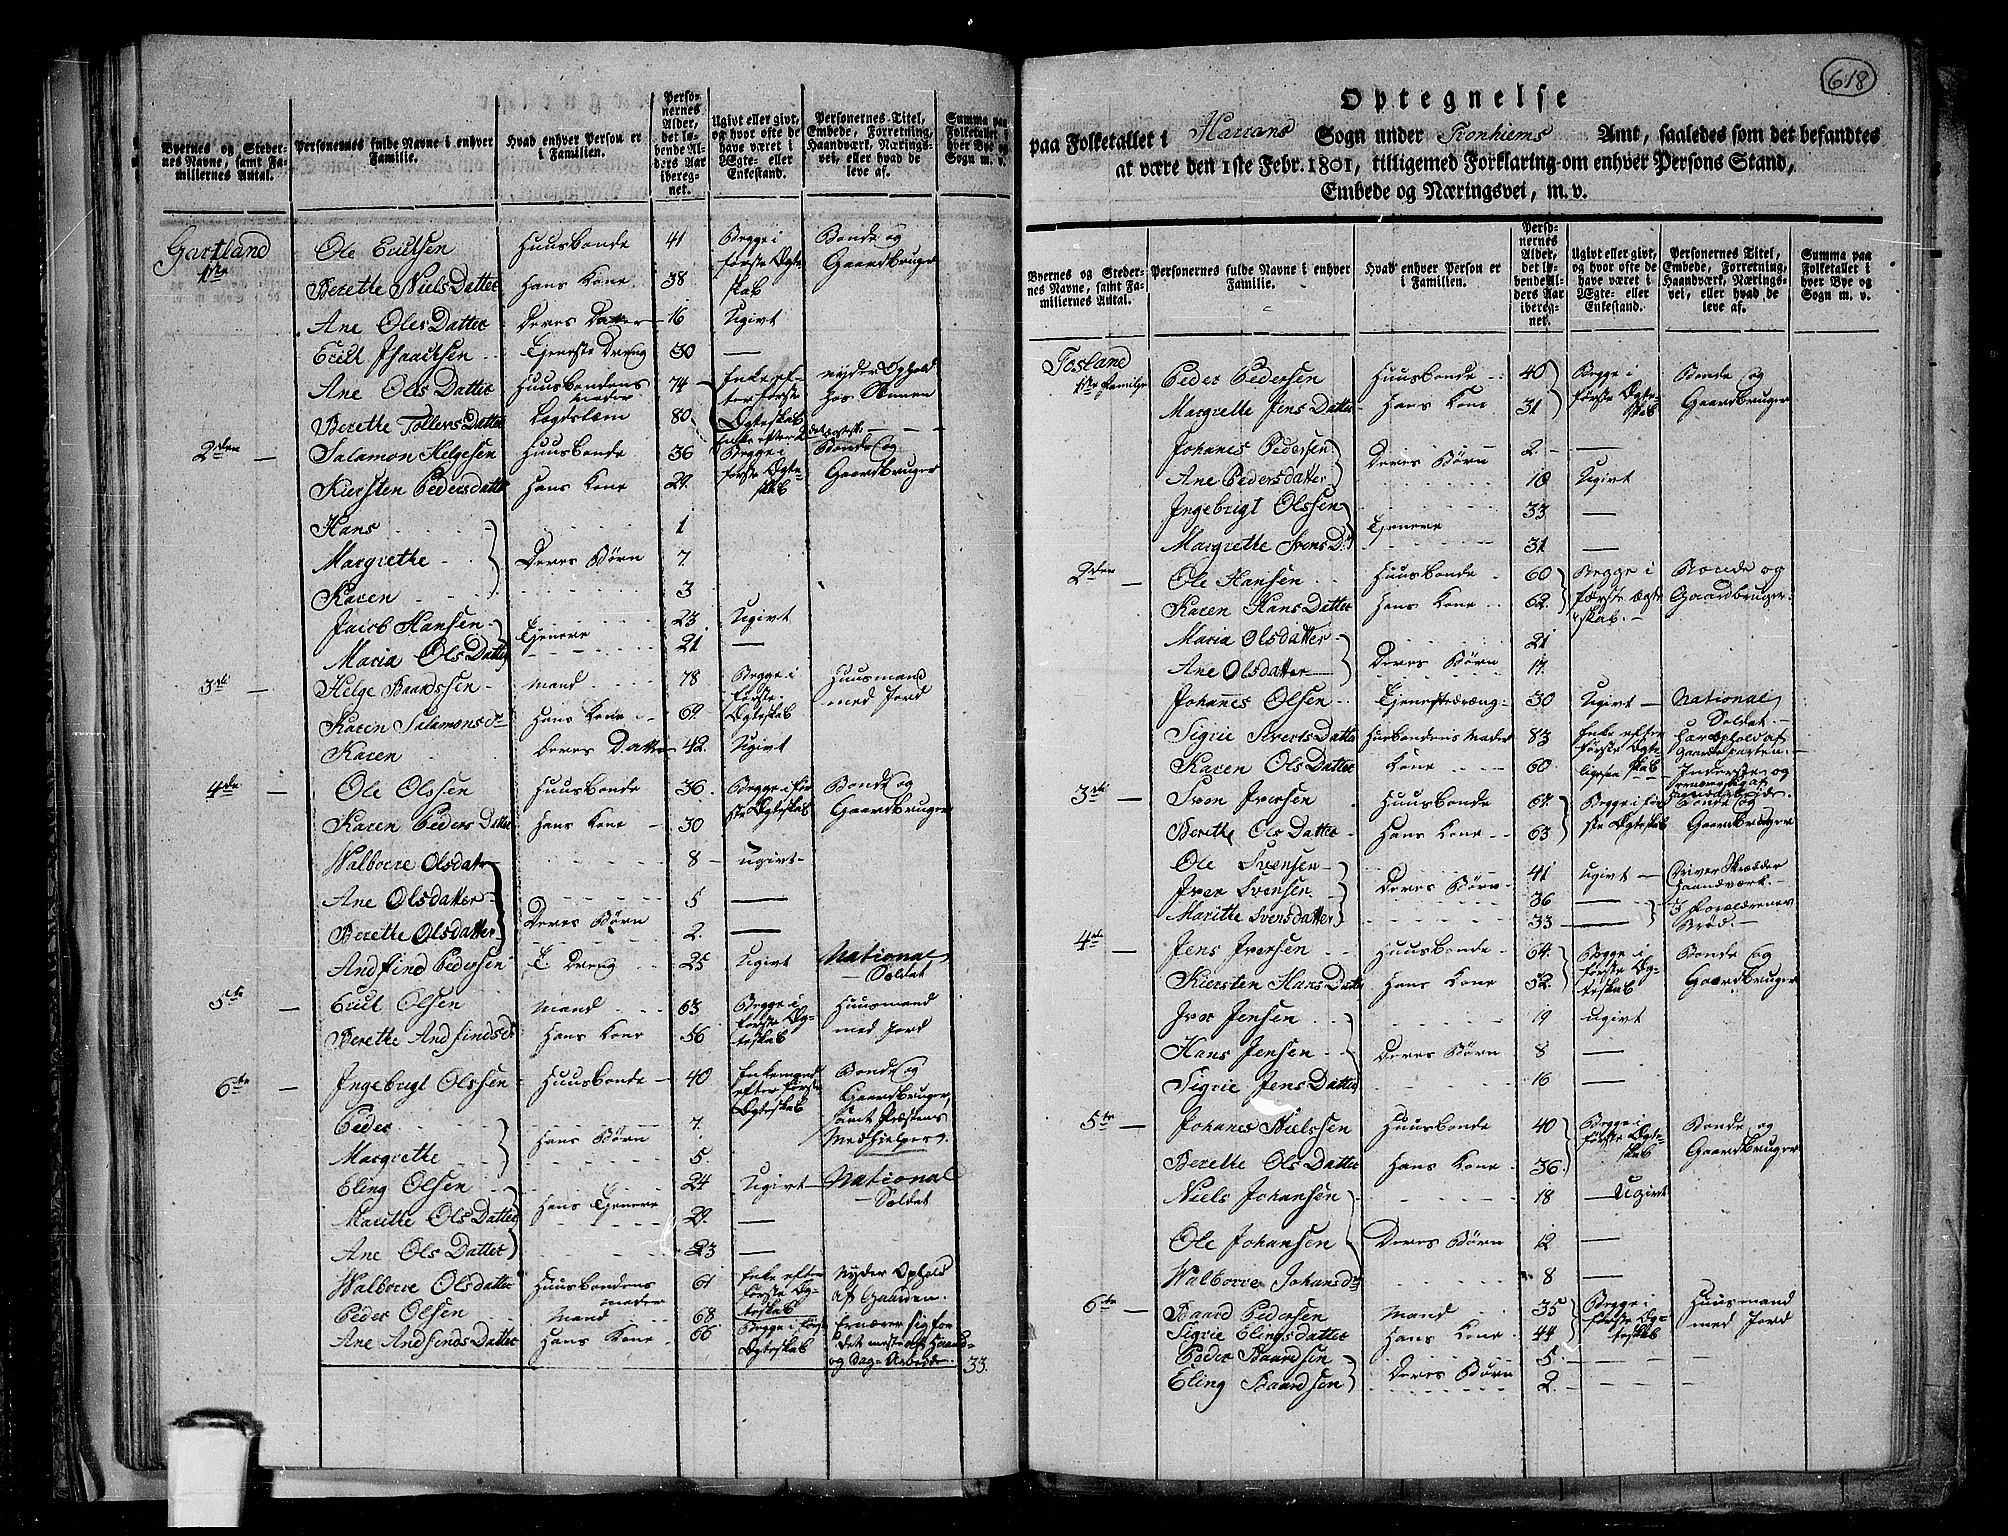 Byernes og Steder-
nes Navne, samt Fa-
miliernes Antal.
Personernes fulde Navne i enhver
Familie.
Hvad enhver Person er
i Familien.
Perso-
nernes
Alder,
det lø-
bende Al-
ders Aar
iberег-
net.
Ugivt eller givt,
og hvor ofte de
have været i
Ægte- eller
Enkestand.
Personernes Titel,
Embede, Forretning,
Haandværk, Nærings-
vei, eller hvad de
leve af.
Summa paa
Folketallet i
hver Bye og
Sogn m. v.
Gartland 1ste Ole Eriksen Huusbonde 41 Begge i første Ægteskab Bonde og Gaardbruger
Berethe NielsDatter Hans Kone 38
Ane OlsDatter Deres Datter 16 Ugivt
Erik Isaacksen Tieneste Dreng 30 —
Ane OlsDatter Huusbondens Moder 74 Enke efter første Ægteskab nyder Ophold hos Sønnen
Berethe TollevsDatter Lægdslæm 80
2den — Salamon Helgesen Huusbonde 36 Begge i første Ægteskab Bonde og Gaardbruger
Kiersten Pedersdatter Hans Kone 29
Hans 1
Margrethe Deres Børn 7
Karen 3
Jacob Hansen Tienere 23 Ugivt
Maria OlsDatter 21 —
3die — Helge Baardssen Mand 78 Begge i første Ægteskab Huusmand med Jord
Karen Salamonsdr Hans Kone 69
Karen Deres Datter 42 Ugivt
4de — Ole Olssen Huusbonde 36 Begge i første Ægteskab Bonde og Gaardbruger
Karen PedersDatter Hans Kone 30
Walborre Olsdatr 8 ugivt
Ane Olsdatter Deres Børn 5 —
Berethe Olsdatter 2 —
Andfind Pedersen T Dreng 25 Ugivt National Soldat
5te — Erik Olsen Mand 63 Begge i første Ægteskab Huusmand med Jord
Berethe Andfindsdr Hans Kone 56
6te — Ingebrigt Olssen Huusbonde 40 Enkemand efter første Ægteskab Bonde og Gaardbruger, samt Præstens Medhielper
Peder Hans Børn 7
Margrethe 5
Eling Olsen Hans Tienere 24 Ugivt National Soldat
Marithe OlsDatter 29 —
Ane OlsDatter 23 —
Walborre Olsdatter Huusbondens Moder 61 Enke efter første Ægteskab Nyder Ophold af Gaarden
Peder Olsen Mand 68 Begge i første Ægteskab Ernærer sig for det meste af Haand- og Dag-Arbeide
Ane AndfindsDatter Hans Kone 66
33
618
Optegnelse
paa Folketallet i Harrans Sogn under Tronhiems Amt, saaledes som det befandtes
at være den 1ste Febr. 1801, tilligemed Forklaring om enhver Persons Stand,
Embede og Næringsvei, m. v.
Byernes og Steder-
nes Navne, samt Fa-
miliernes Antal.
Personernes fulde Navne i enhver
Familie.
Hvad enhver Person er
i Familien.
Perso-
nernes
Alder,
det lø-
bende Al-
ders Aar
ibereg-
net.
Ugivt eller givt,
og hvor ofte de
have været i
Ægte- eller
Enkestand.
Personernes Titel,
Embede, Forretning,
Haandværk, Nærings-
vei, eller hvad de
leve af.
Summa paa
Folketallet i
hver Bye og
Sogn m. v.
Fosland 1ste Familje Peder Pedersen Huusbonde 40 Begge i første Ægteskab Bonde og Gaardbruger
Margrethe JensDatter Hans Kone 31
Johanes Pedersen Deres Børn 2 —
Ane Pedersdatter 10 Ugivt
Ingebrigt Olssen Tienere 33 —
Margrethe SvensDr 31 —
2den — Ole Hansen Huusbonde 60 Begge i første Ægteskab Bonde og Gaardbruger
Karen HansDatter Hans Kone 62
Maria Olsdatter Deres Børn 21
Ane Olsdatter 17
Johanes Olsen Tienestedreng 30 Ugivt National Soldat
Sigrie SivertsDatter Husbondens Moder 83 Enke efter første Ægte har ophold af Gaardeparten
Karen OlsDatter Kone 60 ligesaa Inderste og
3die — Sven Iversen Huusbonde 67 Begge i første Ægteskab Bonde og Gaardbruger
Berethe OlsDatter Hans Kone 63
Ole Svensen Deres Børn 41 Ugivt Driver Skrædder Haandværk
Iver Svensen 36 —
Marithe Svensdatter 33 — I Forældrenes Brød
4de — Jens Iversen Huusbonde 64 Begge i første Ægteskab Bonde og Gaardbruger
Kiersten HansDatter Hans Kone 52
Iver Jensen 19 ugivt
Hans Jensen Deres Børn 8 —
Sigrie JensDatter 16 —
5te — Johanes Nielssen Huusbonde 40 Begge i første Ægteskab Bonde og Gaardbruger
Berethe OlsDatter Hans Kone 36
Niels Johansen 18 — Ugivt
Ole Johansen Deres Børn 12 —
Walborre Johansdr 8 —
6te — Baard Pedersen Mand 35 Begge i første Ægteskab Huusmand med Jord
Sigrie Elingsdatter Hans Kone 44
Peder Baardsen Deres Børn 5
Eling Baardsen 2